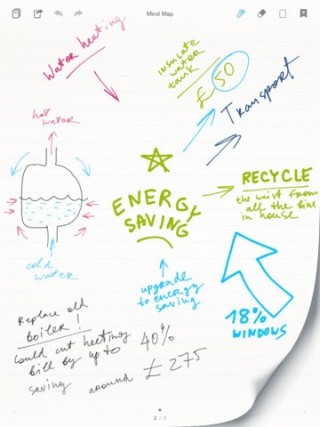 Mind Map
Water heating
insulate
water
tank
£50
Transport
hot
water
ENERGY
SAVING
RECYCLE
the wist from
all the bins
in house
cold
water
upgrade
to energy
saving
18%
WINDOWS
Replace old
boiler!
Could cut heating
bill by up to 40%
saving around £275
2 / 2